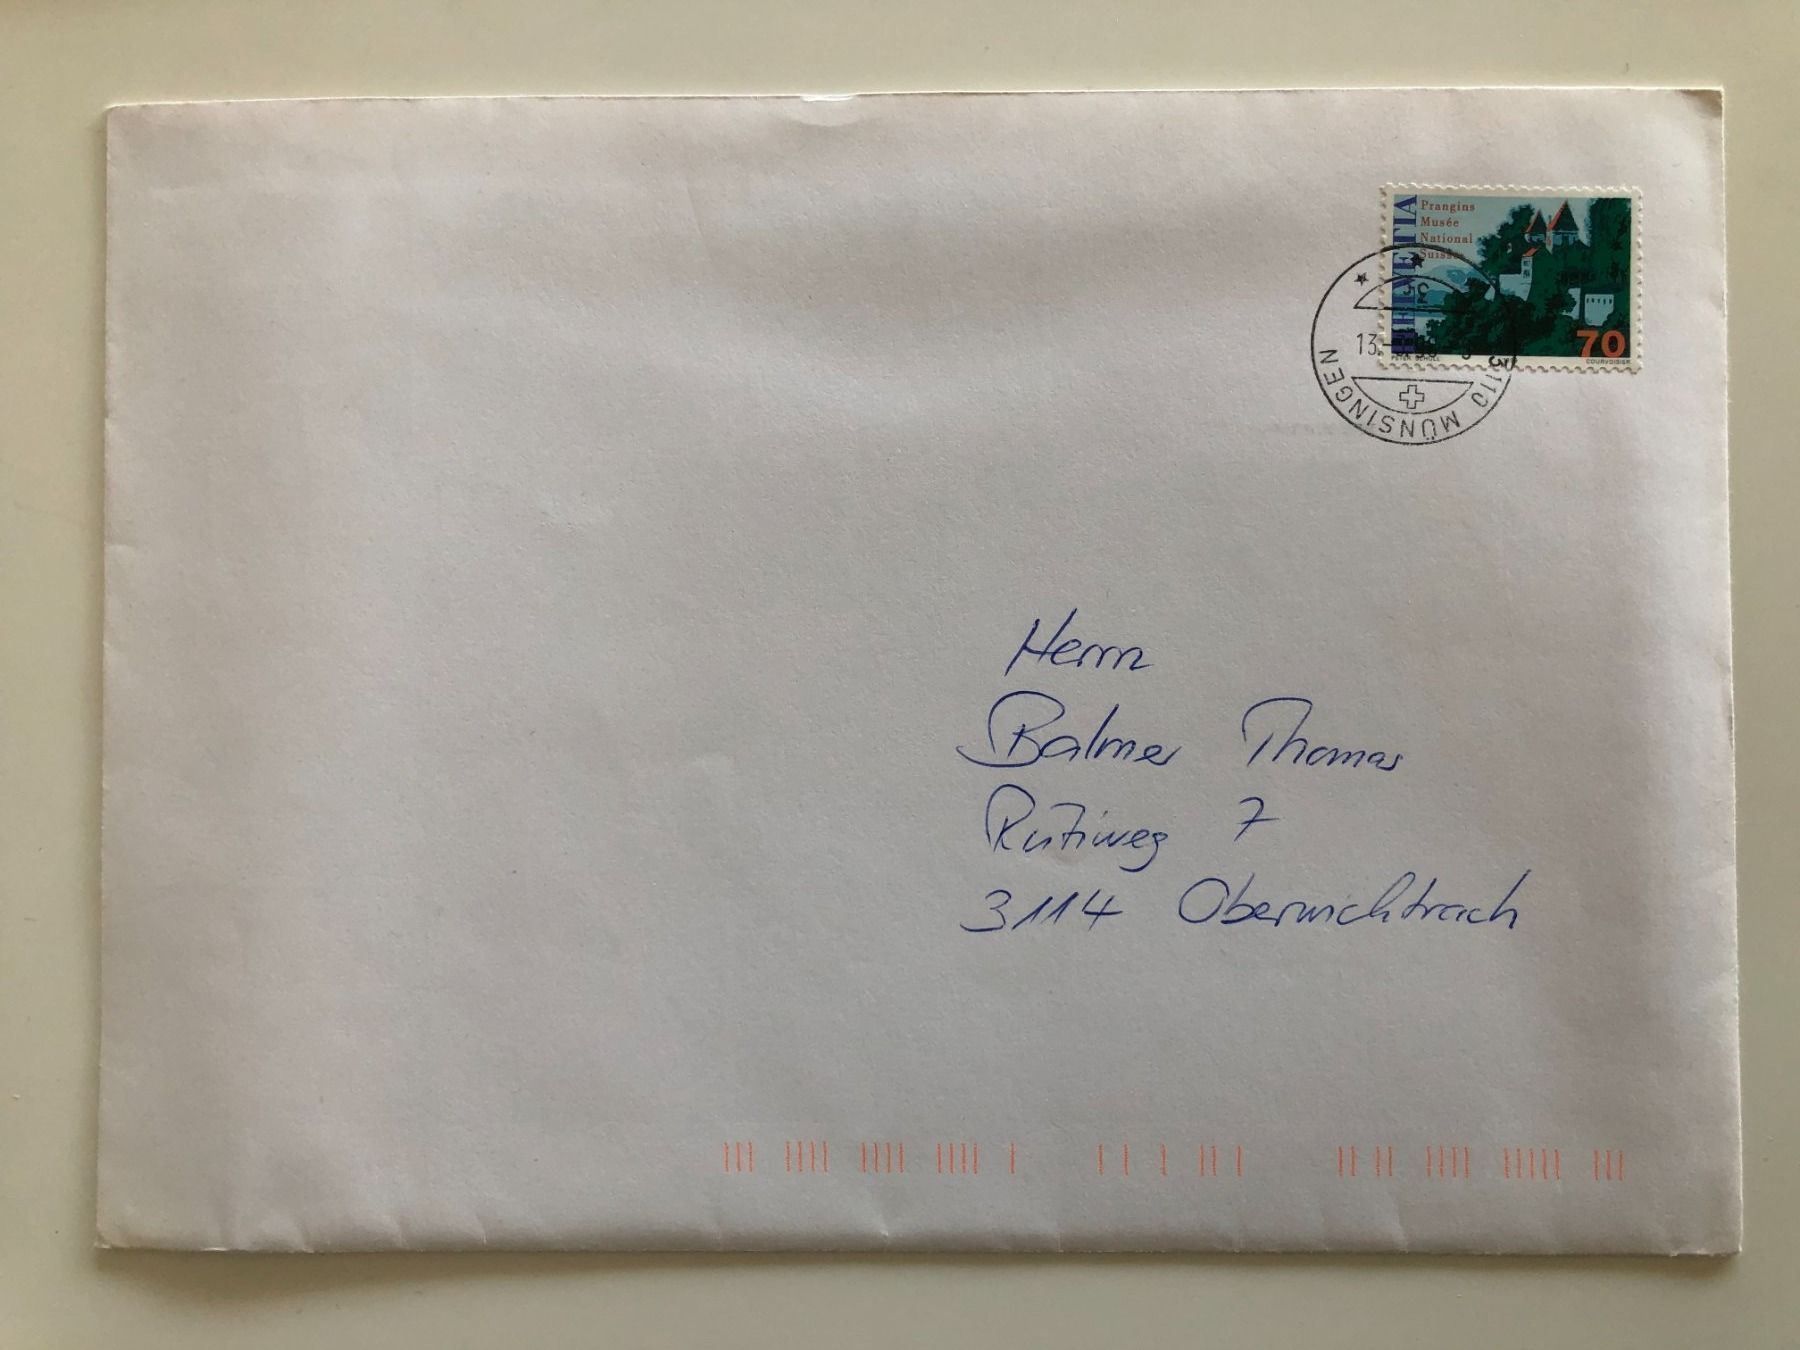 HELVETIA
Prangins
Musée
National
Suisse
70
PETER SCHOLL
COURVOISIER
13.
3110 MÜNSINGEN
Herrn
Balmer Thomas
Rütiweg 7
3114 Oberwichtrach